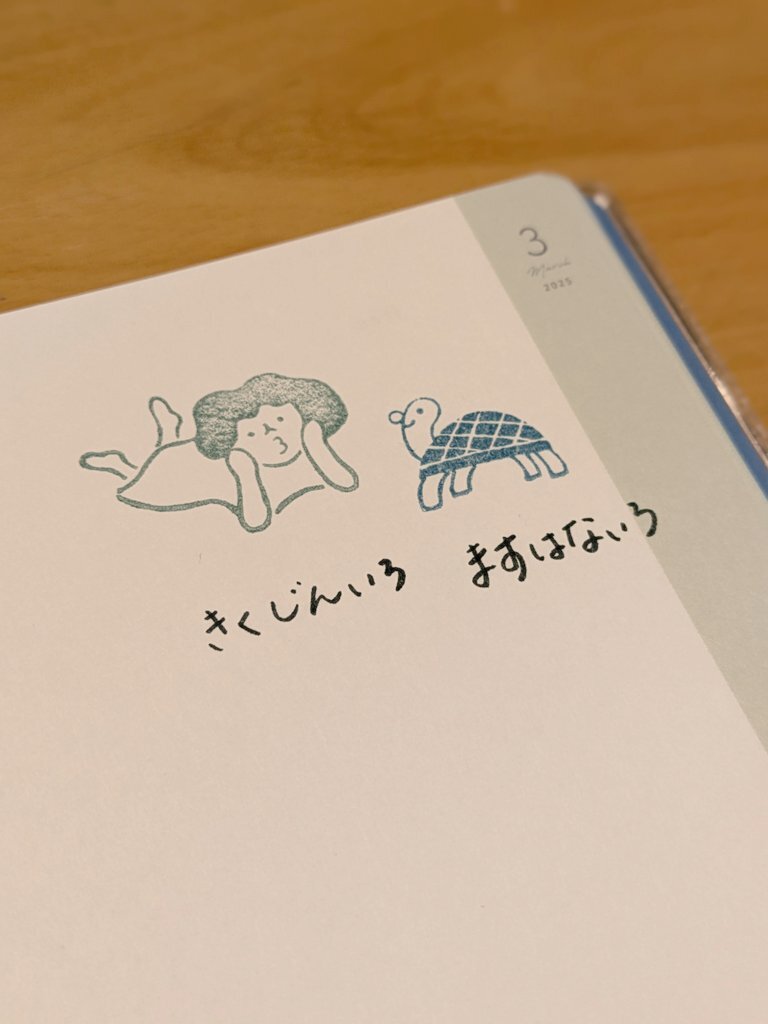 3
March
2025
きくじんいろ ますはないろ